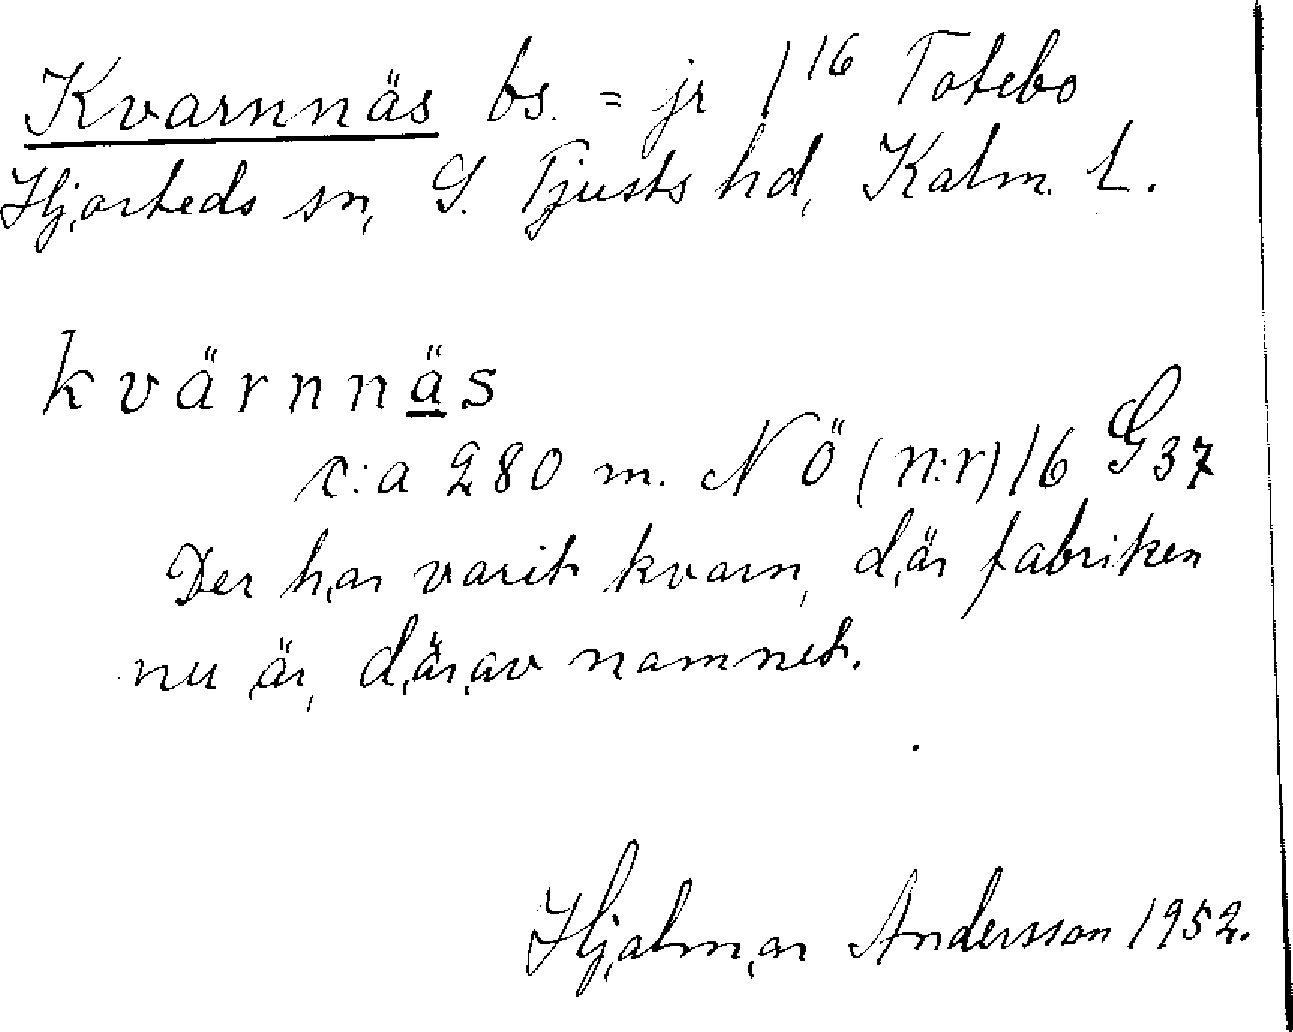 Kvarnnäs bs. = jr 1¹⁶ Totebo
Hjorteds sn, S. Tjusts hd, Kalm. L.
kvärnnäs
c:a 280 m. NÖ (n:r) 16 G37
Der har varit kvarn, där fabriken
nu är, därav namnet.
Hjalmar Andersson 1952.